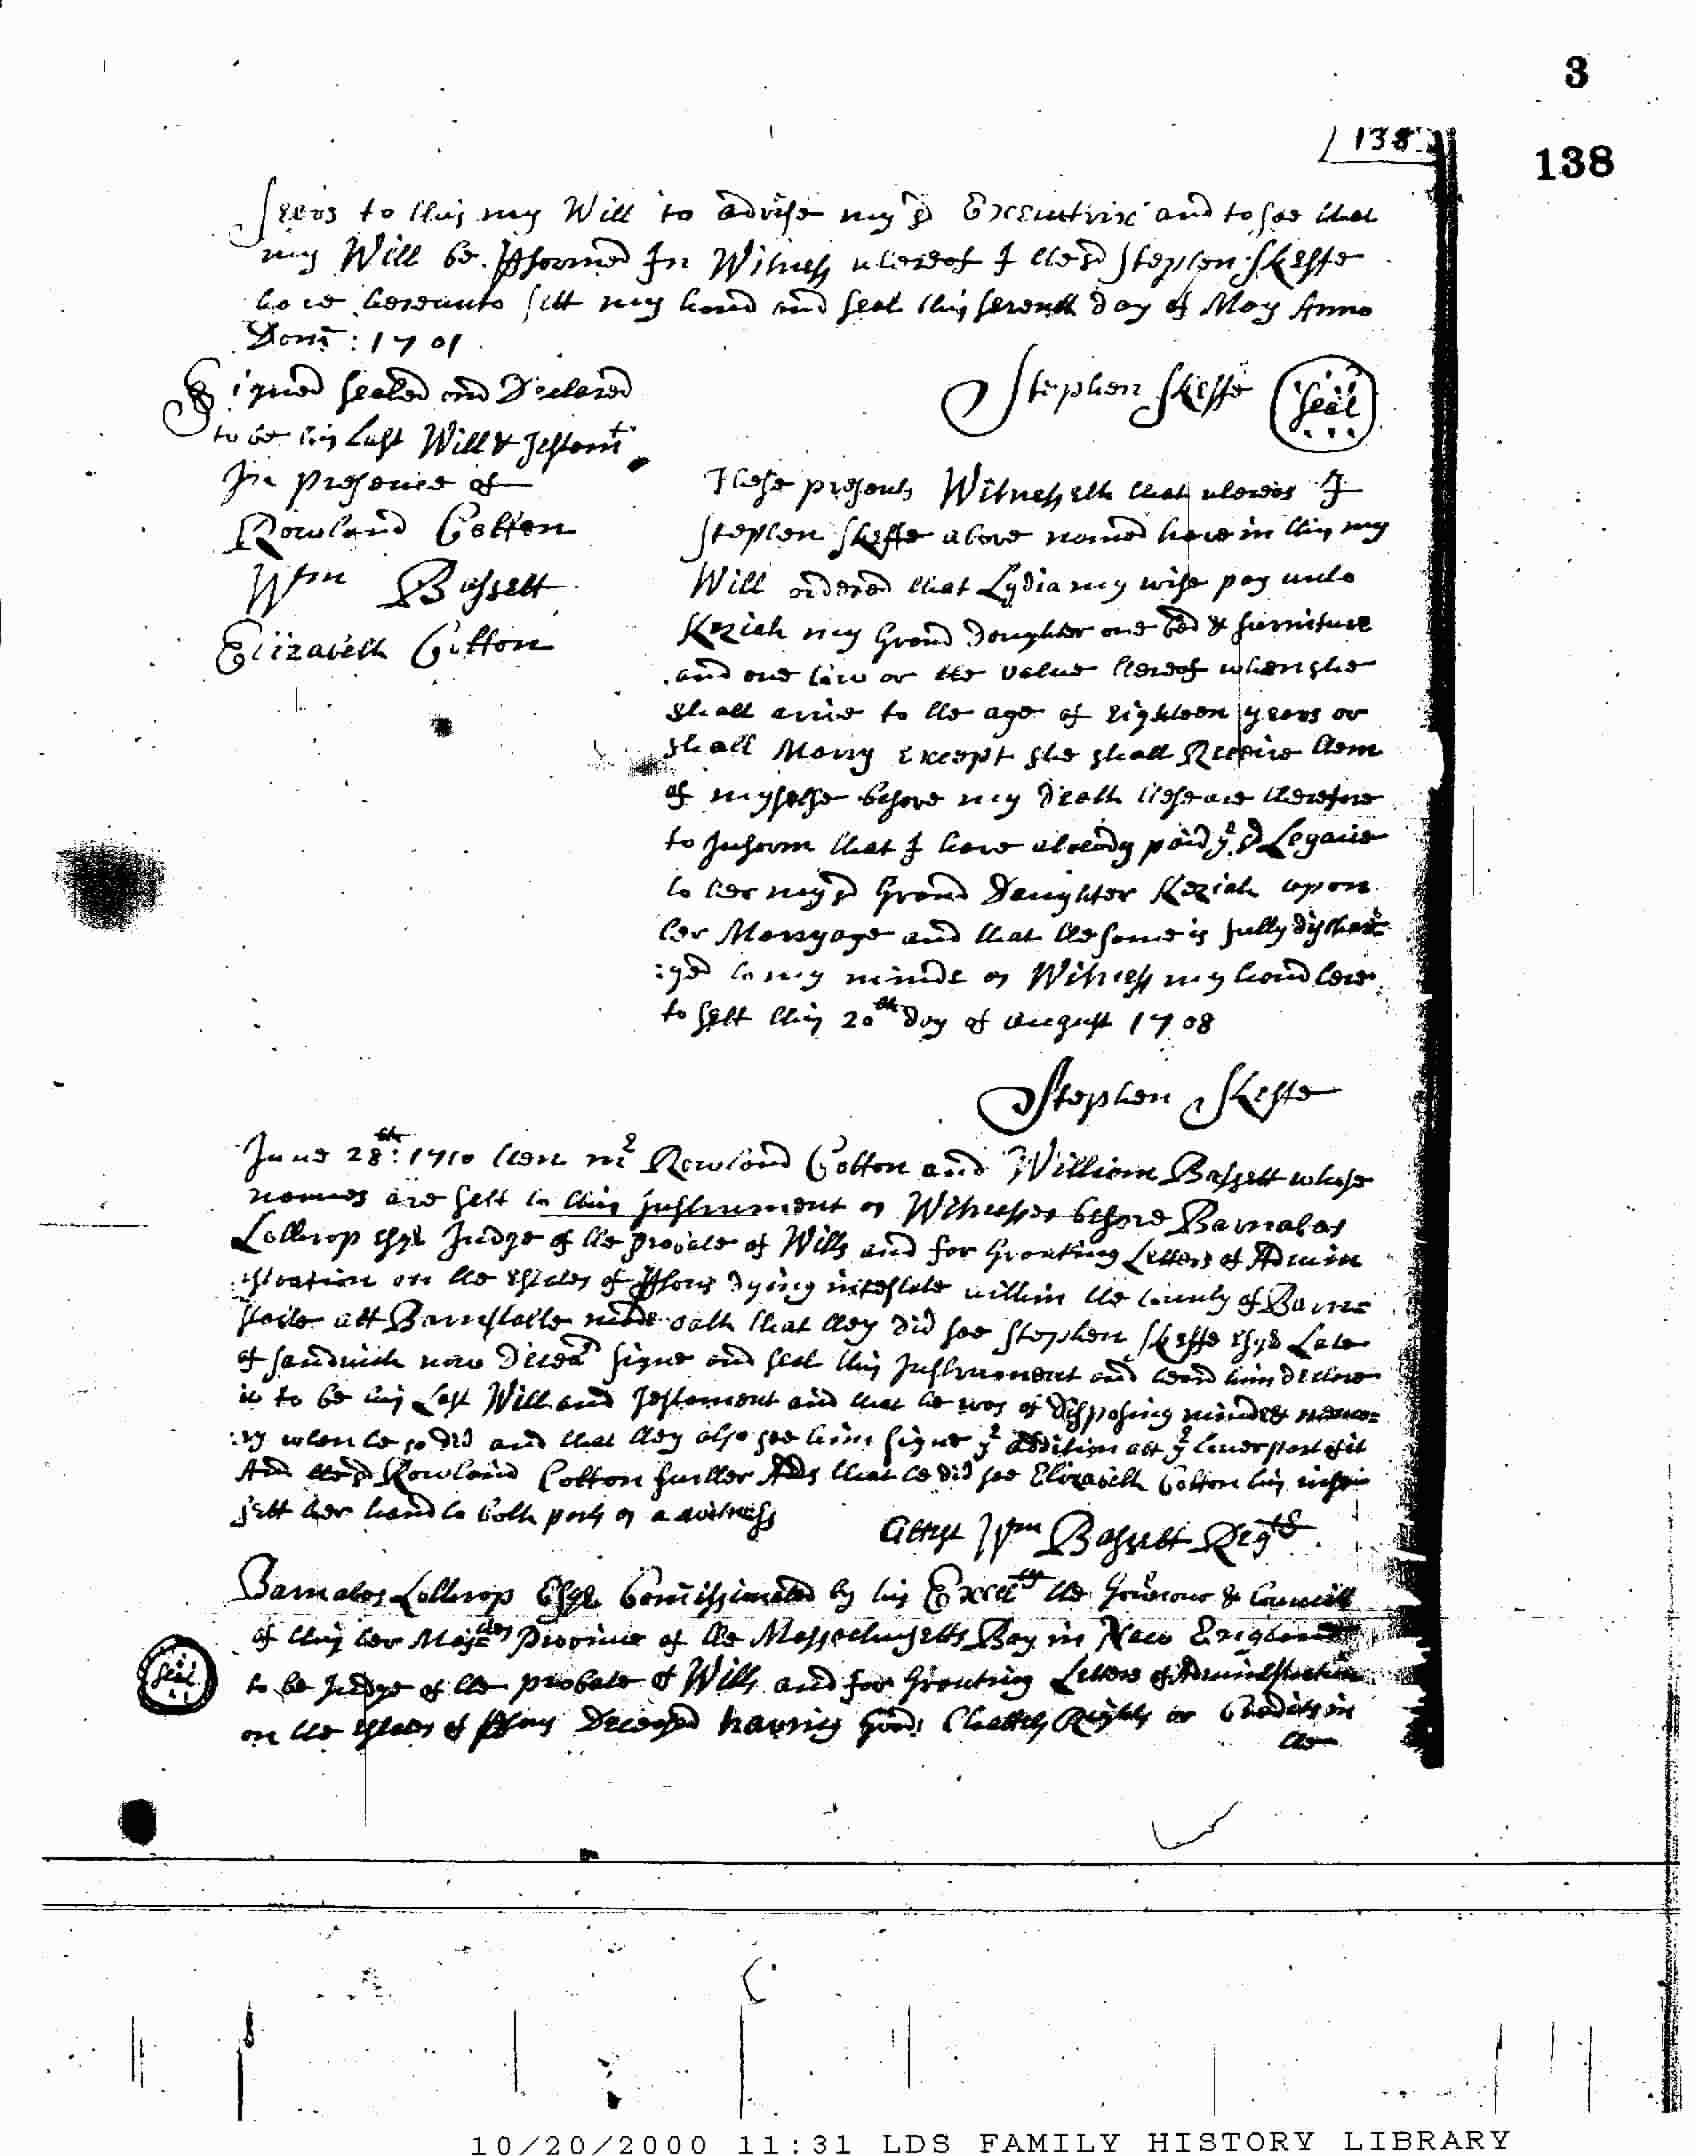 3
138
138
seers to this my Will to advise my sd Executrix and to see that
my Will be pformed In Witness whereof I the sd Stephen Skeffe
have hereunto sett my hand and seal this seventh day of May Anno
Domi : 1701
Signed sealed and Declared
to be his Last Will & Testamt
In presence of
Rowland Cotton
Wm Bassett
Elizabeth Cotton
Stephen Skeffe
Seal
These presents Witnesseth that whereas I
Stephen Skeffe above named have in this my
Will ordered that Lydia my wife pay unto
Keziah my Grand Daughter one bed & furniture
and one cow or the value thereof when she
shall arive to the age of eighteen years or
shall Marry except she shall Receive them
of myselfe before my Death these are therefore
to Inform that I have already paid ye sd Legacie
to her my sd Grand Daughter Keziah upon
her Marryage and that the same is fully dischar=
:ged to my minde as Witness my hand here
to sett this 20th day of August 1708
Stephen Skeffe
June 28th: 1710 then mr Rowland Cotton and William Bassett whose
names are sett to this Instrument as Witnesses before Barnabas
Lothrop Esqr Judge of the probate of Wills and for Granting Letters of Admin
:istration on the Estates of psons dying intestate within the County of Barn=
stable att Barnstable made oath that they did see Stephen Skeffe Esqr Late
of Sandwich now Deceasd signe and seal this Instrument and heard him declare
it to be his Last Will and Testament and that he was of disposing minde & memo=
:ry when he so did and that they also see him signe ye addition att ye lower part of it
And the sd Rowland Cotton further Adds that he did see Elizabeth Cotton his wife
sett her hand to both parts as a witness
Attest Wm Bassett Regtr
Barnabas Lothrop Esqr Comissionated by his Excelcy the Govrnour & Councill
of this her Majties Province of the Massachusetts Bay in New England
Seal
to be Judge of the probate of Wills and for Granting Letters of Administration
on the Estates of psons Deceased having Goods Chattels Rights or Credits in
the
10/20/2000 11:31 LDS FAMILY HISTORY LIBRARY